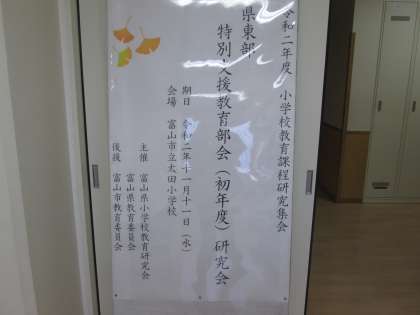 令和二年度 小学校教育課程研究集会
県東部
特別支援教育部会(初年度)研究会
期日 令和二年十一月十一日(水)
会場 富山市立太田小学校
主催 富山県小学校教育研究会
富山県教育委員会
後援 富山市教育委員会